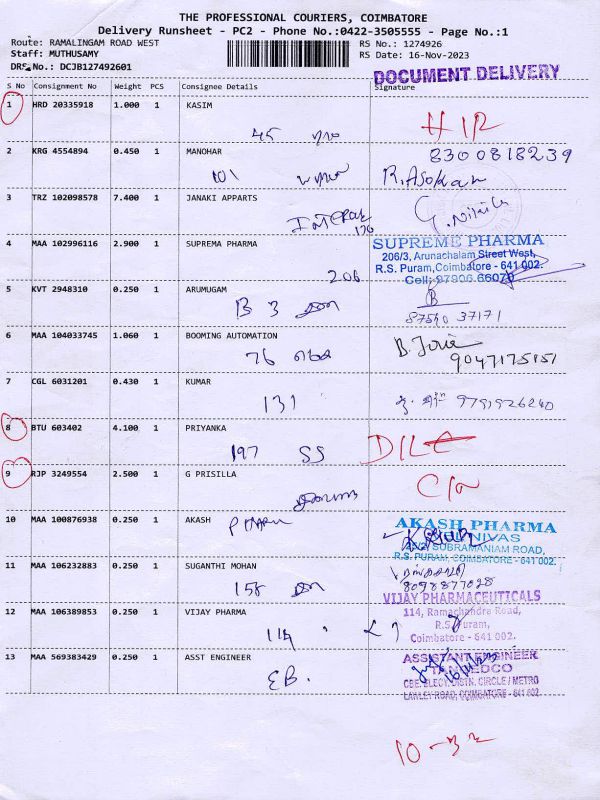 THE PROFESSIONAL COURIERS, COIMBATORE
Delivery Runsheet - PC2 - Phone No.:0422-3505555 - Page No.:1
Route: RAMALINGAM ROAD WEST RS No.: 1274926
Staff: MUTHUSAMY RS Date: 16-Nov-2023
DRS No.: DCJB127492601
DOCUMENT DELIVERY
S No Consignment No Weight PCS Consignee Details Signature
1 HRD 20335918 1.000 1 KASIM
45
2 KRG 4554894 0.450 1 MANOHAR 8300818239
101 R. Asokan
3 TRZ 102098578 7.400 1 JANAKI APPARTS
176
4 MAA 102996116 2.900 1 SUPREMA PHARMA SUPREME PHARMA
206/3, Arunachalam Street West,
206 R.S. Puram, Coimbatore - 641 002.
Cell: 97906 66070
5 KVT 2948310 0.250 1 ARUMUGAM B
B 3 87540 37171
6 MAA 104033745 1.060 1 BOOMING AUTOMATION
76 9047175151
7 CGL 6031201 0.430 1 KUMAR
131 9791926240
8 BTU 603402 4.100 1 PRIYANKA
197 SS
9 RJP 3249554 2.500 1 G PRISILLA
10 MAA 100876938 0.250 1 AKASH AKASH PHARMA
SUBRAMANIAM ROAD,
R.S. PURAM, COIMBATORE - 641 002.
11 MAA 106232883 0.250 1 SUGANTHI MOHAN
158 8098877028
12 MAA 106389853 0.250 1 VIJAY PHARMA VIJAY PHARMACEUTICALS
114, Ramachandra Road,
114 R.S. Puram,
Coimbatore - 641 002.
13 MAA 569383429 0.250 1 ASST ENGINEER ASSISTANT ENGINEER
TANGEDCO
EB. CBE. ELECY. DISTN. CIRCLE / METRO
LAWLEY ROAD, COIMBATORE - 641 002